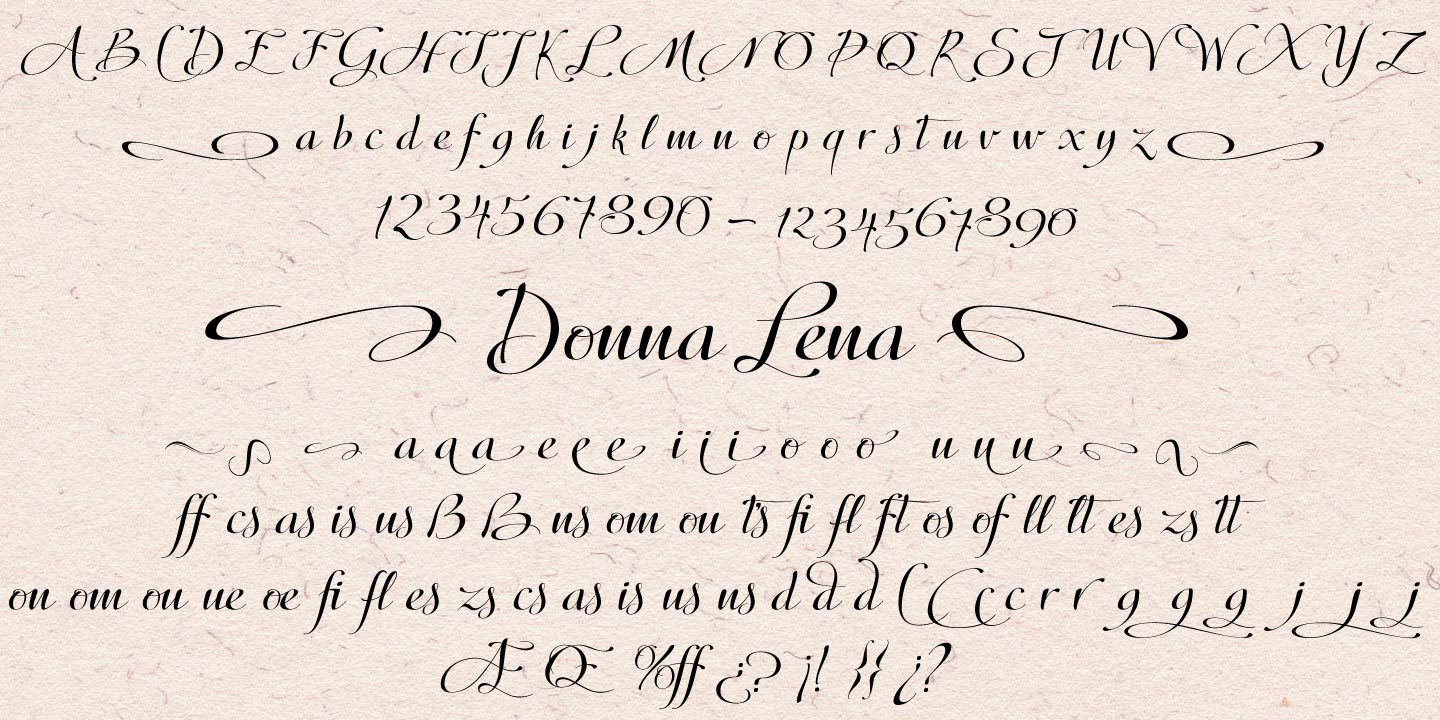 A B C D E F G H I J K L M N O P Q R S T U V W X Y Z
a b c d e f g h i j k l m n o p q r s t u v w x y z
1234567890 – 1234567890
Donna Lena
a a a e e e i i i o o o u u u
ff cs as is us B B ns om ou ts fi fl ft os of ll tt es zs tt
on om ou ue oe fi fl es zs cs as is us ns d d d C C c c r r g g g j j j
Æ Œ % ff ¿? ¡! {} ¿?